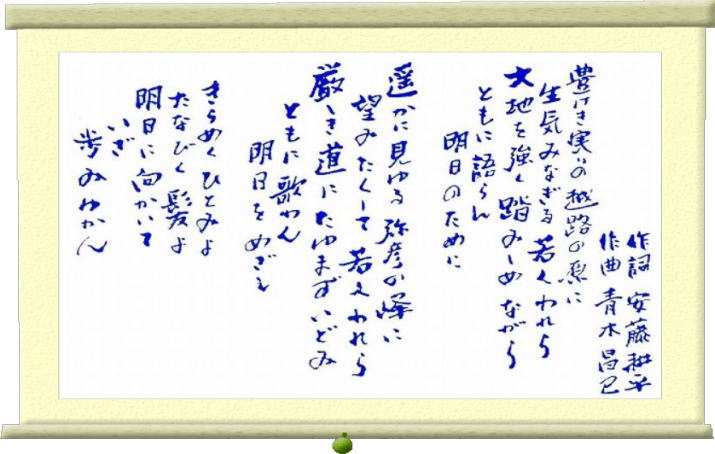 作詞 安藤耕平
作曲 青木昌己
豊けき実りの越路の原に
生気みなぎる若くわれら
大地を強く踏みしめながら
ともに語らん
明日のために
遥かに見ゆる弥彦の峰に
望みたくして若くわれら
厳しき道にたゆまずいどみ
ともに歌わん
明日をめざし
きらめくひとみよ
たなびく髪よ
明日に向かいて
いざ
歩みゆかん